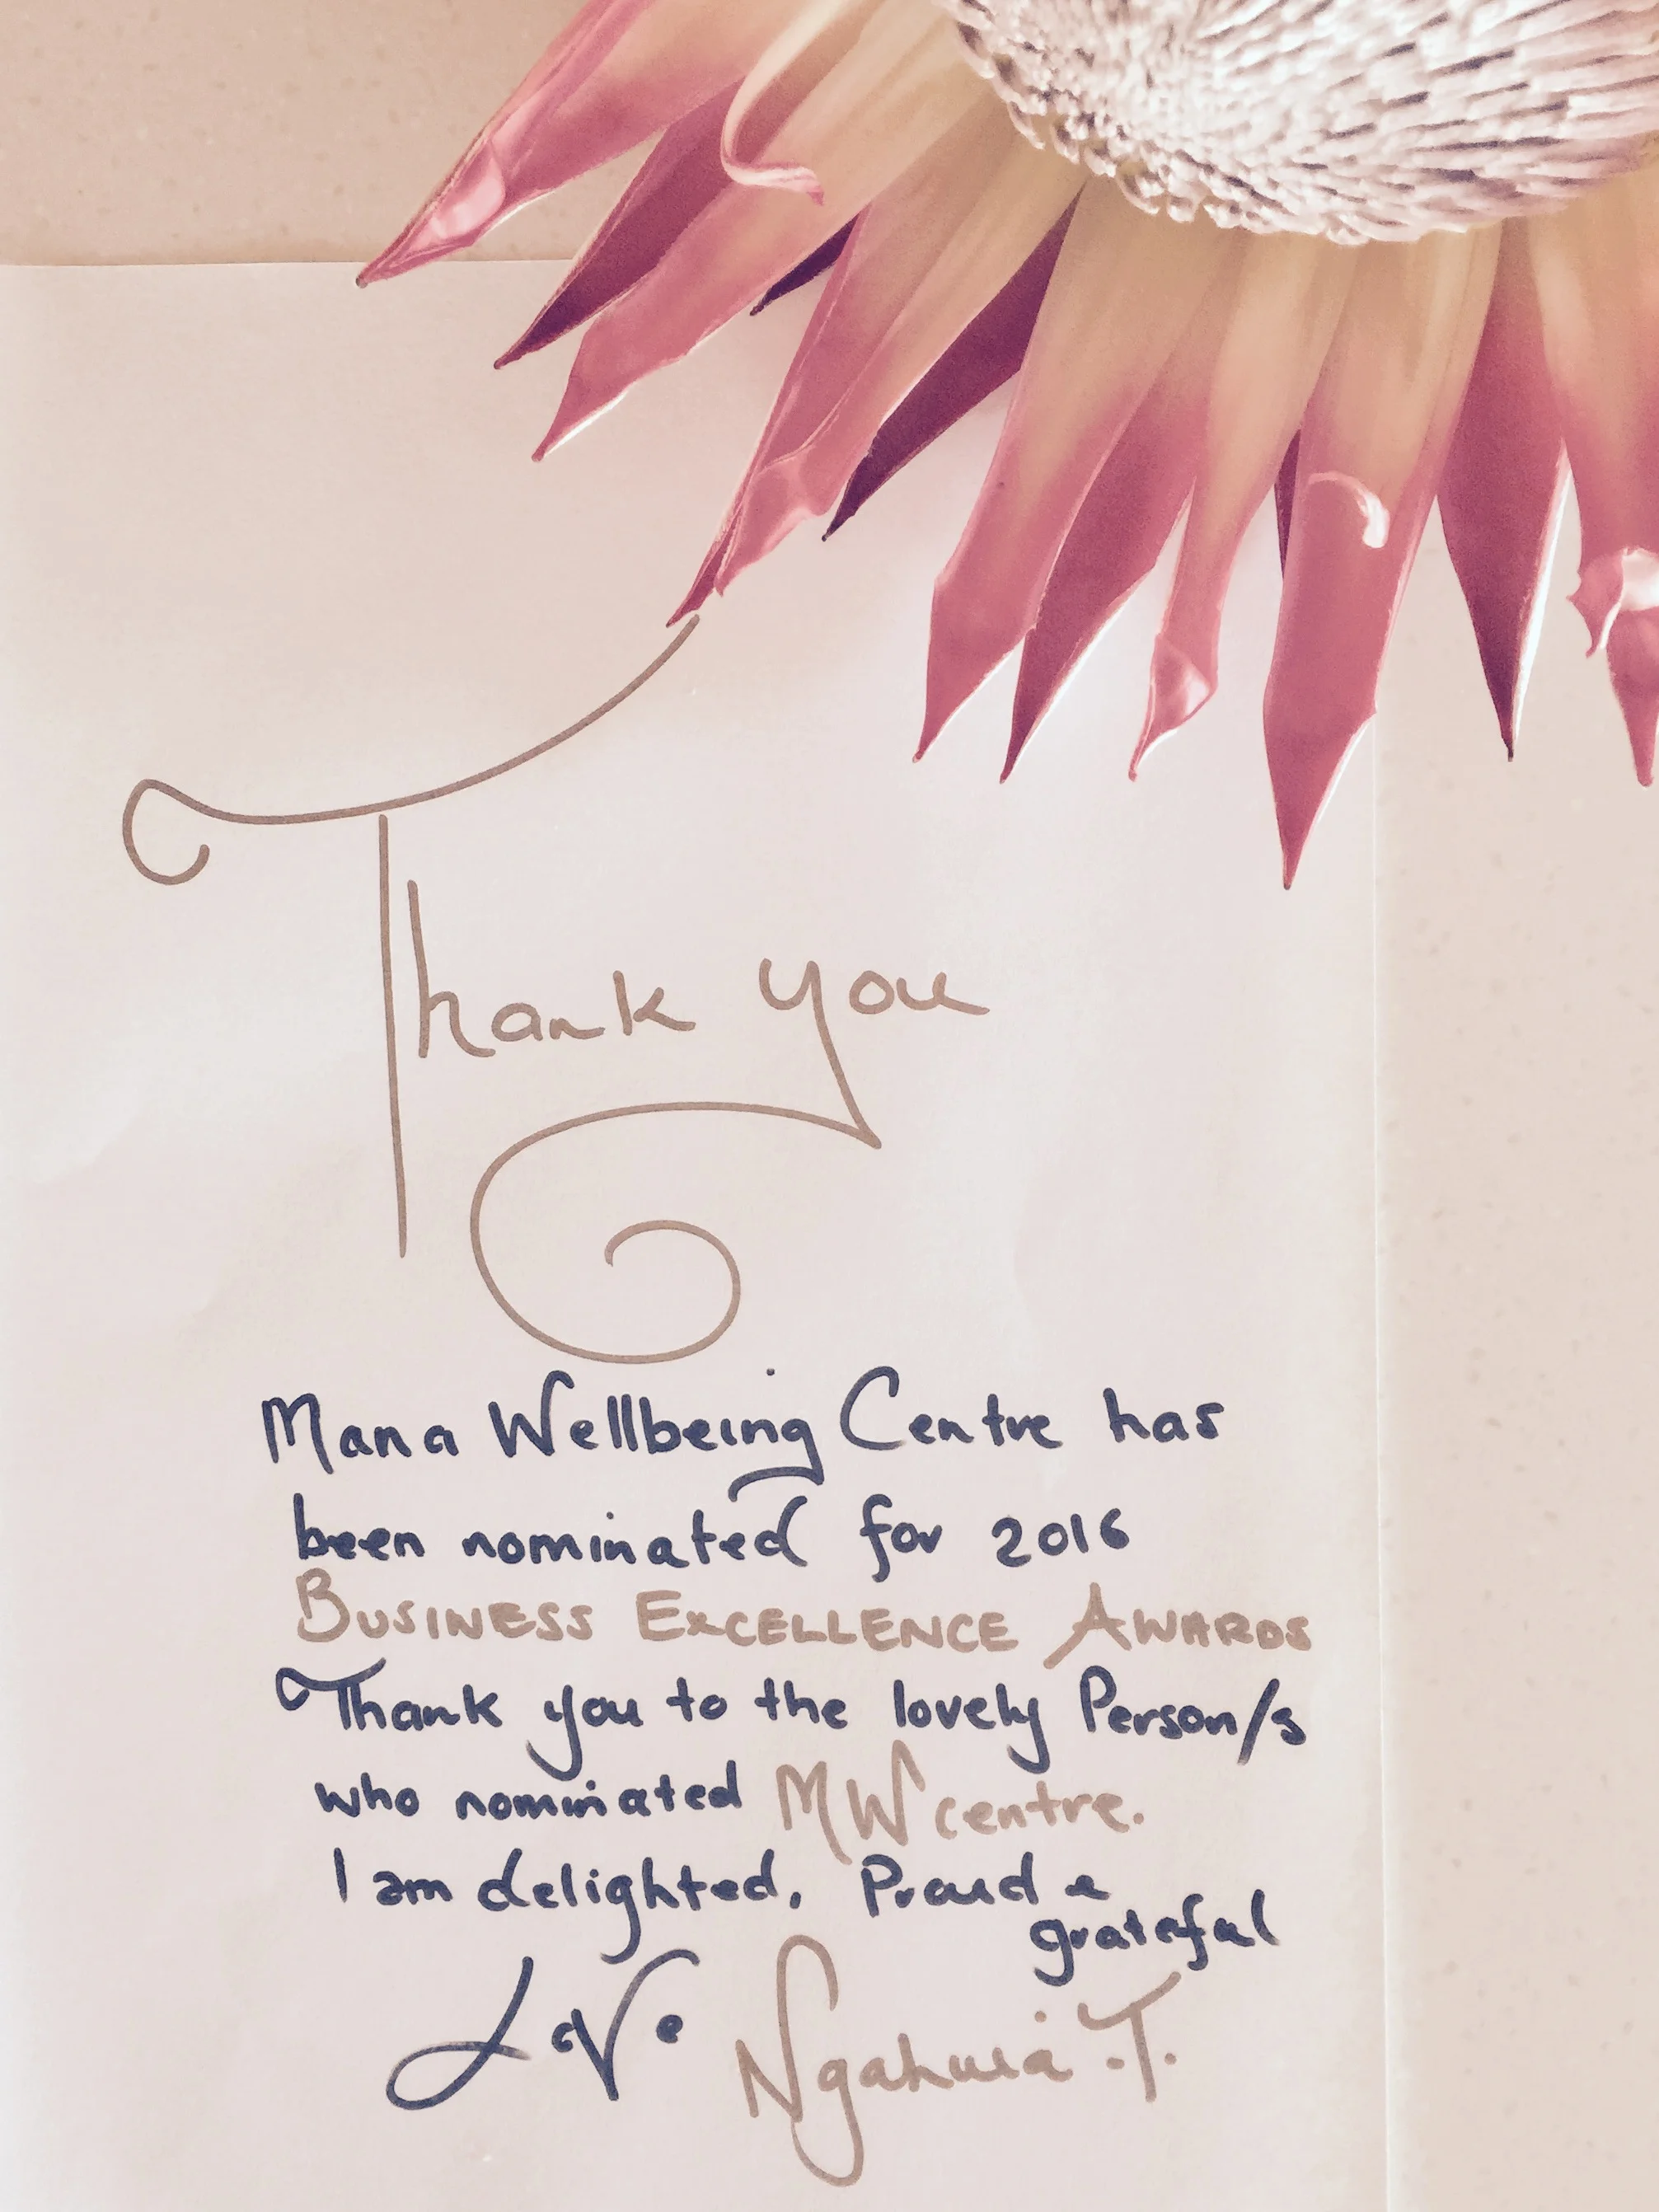 Thank you
Mana Wellbeing Centre has
been nominated for 2016
BUSINESS EXCELLENCE AWARDS
Thank you to the lovely Person/s
who nominated MW centre.
I am delighted, Proud &
grateful
Love Ngahuia .T.